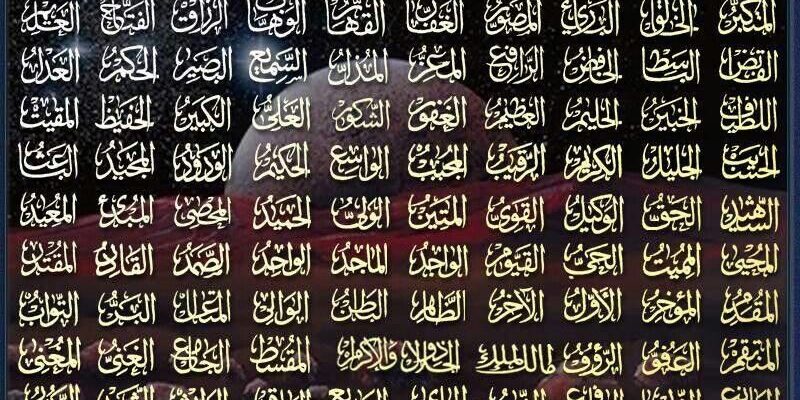 المتكبر الخالق البارئ المصور الغفار القهار الوهاب الرزاق الفتاح العليم
القابض الباسط الخافض الرافع المعز المذل السميع البصير الحكم العدل
اللطيف الخبير الحليم العظيم الغفور الشكور العلي الكبير الحفيظ المقيت
الحسيب الجليل الكريم الرقيب المجيب الواسع الحكيم الودود المجيد الباعث
الشهيد الحق الوكيل القوي المتين الولي الحميد المحصي المبدئ المعيد
المحيي المميت الحي القيوم الواجد الماجد الواحد الصمد القادر المقتدر
المقدم المؤخر الأول الآخر الظاهر الباطن الوالي المتعال البر التواب
المنتقم العفو الرؤوف مالك الملك ذو الجلال والإكرام المقسط الجامع الغني المغني